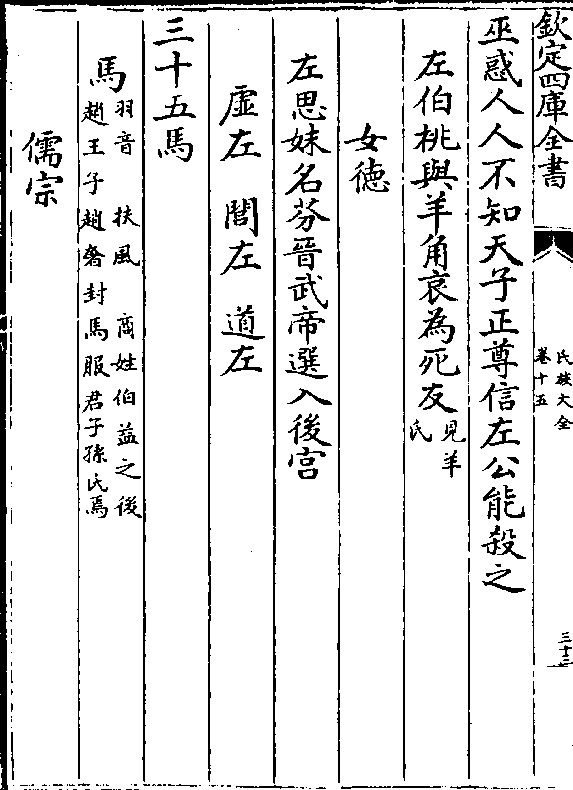 欽定四庫全書
氏族大全
卷十五
三十三
巫惑人人不知天子正尊信左公能殺之
左伯桃與羊角哀為死友見羊氏
女徳
左思妹名芬晉武帝選入後宫
虚左　閭左　道左
三十五馬
馬羽音　扶風　商姓伯益之後
趙王子趙奢封馬服君子孫氏焉
儒宗